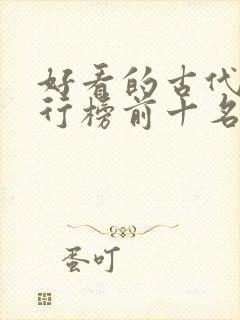 好看的古代
行榜前十名
蛋叮